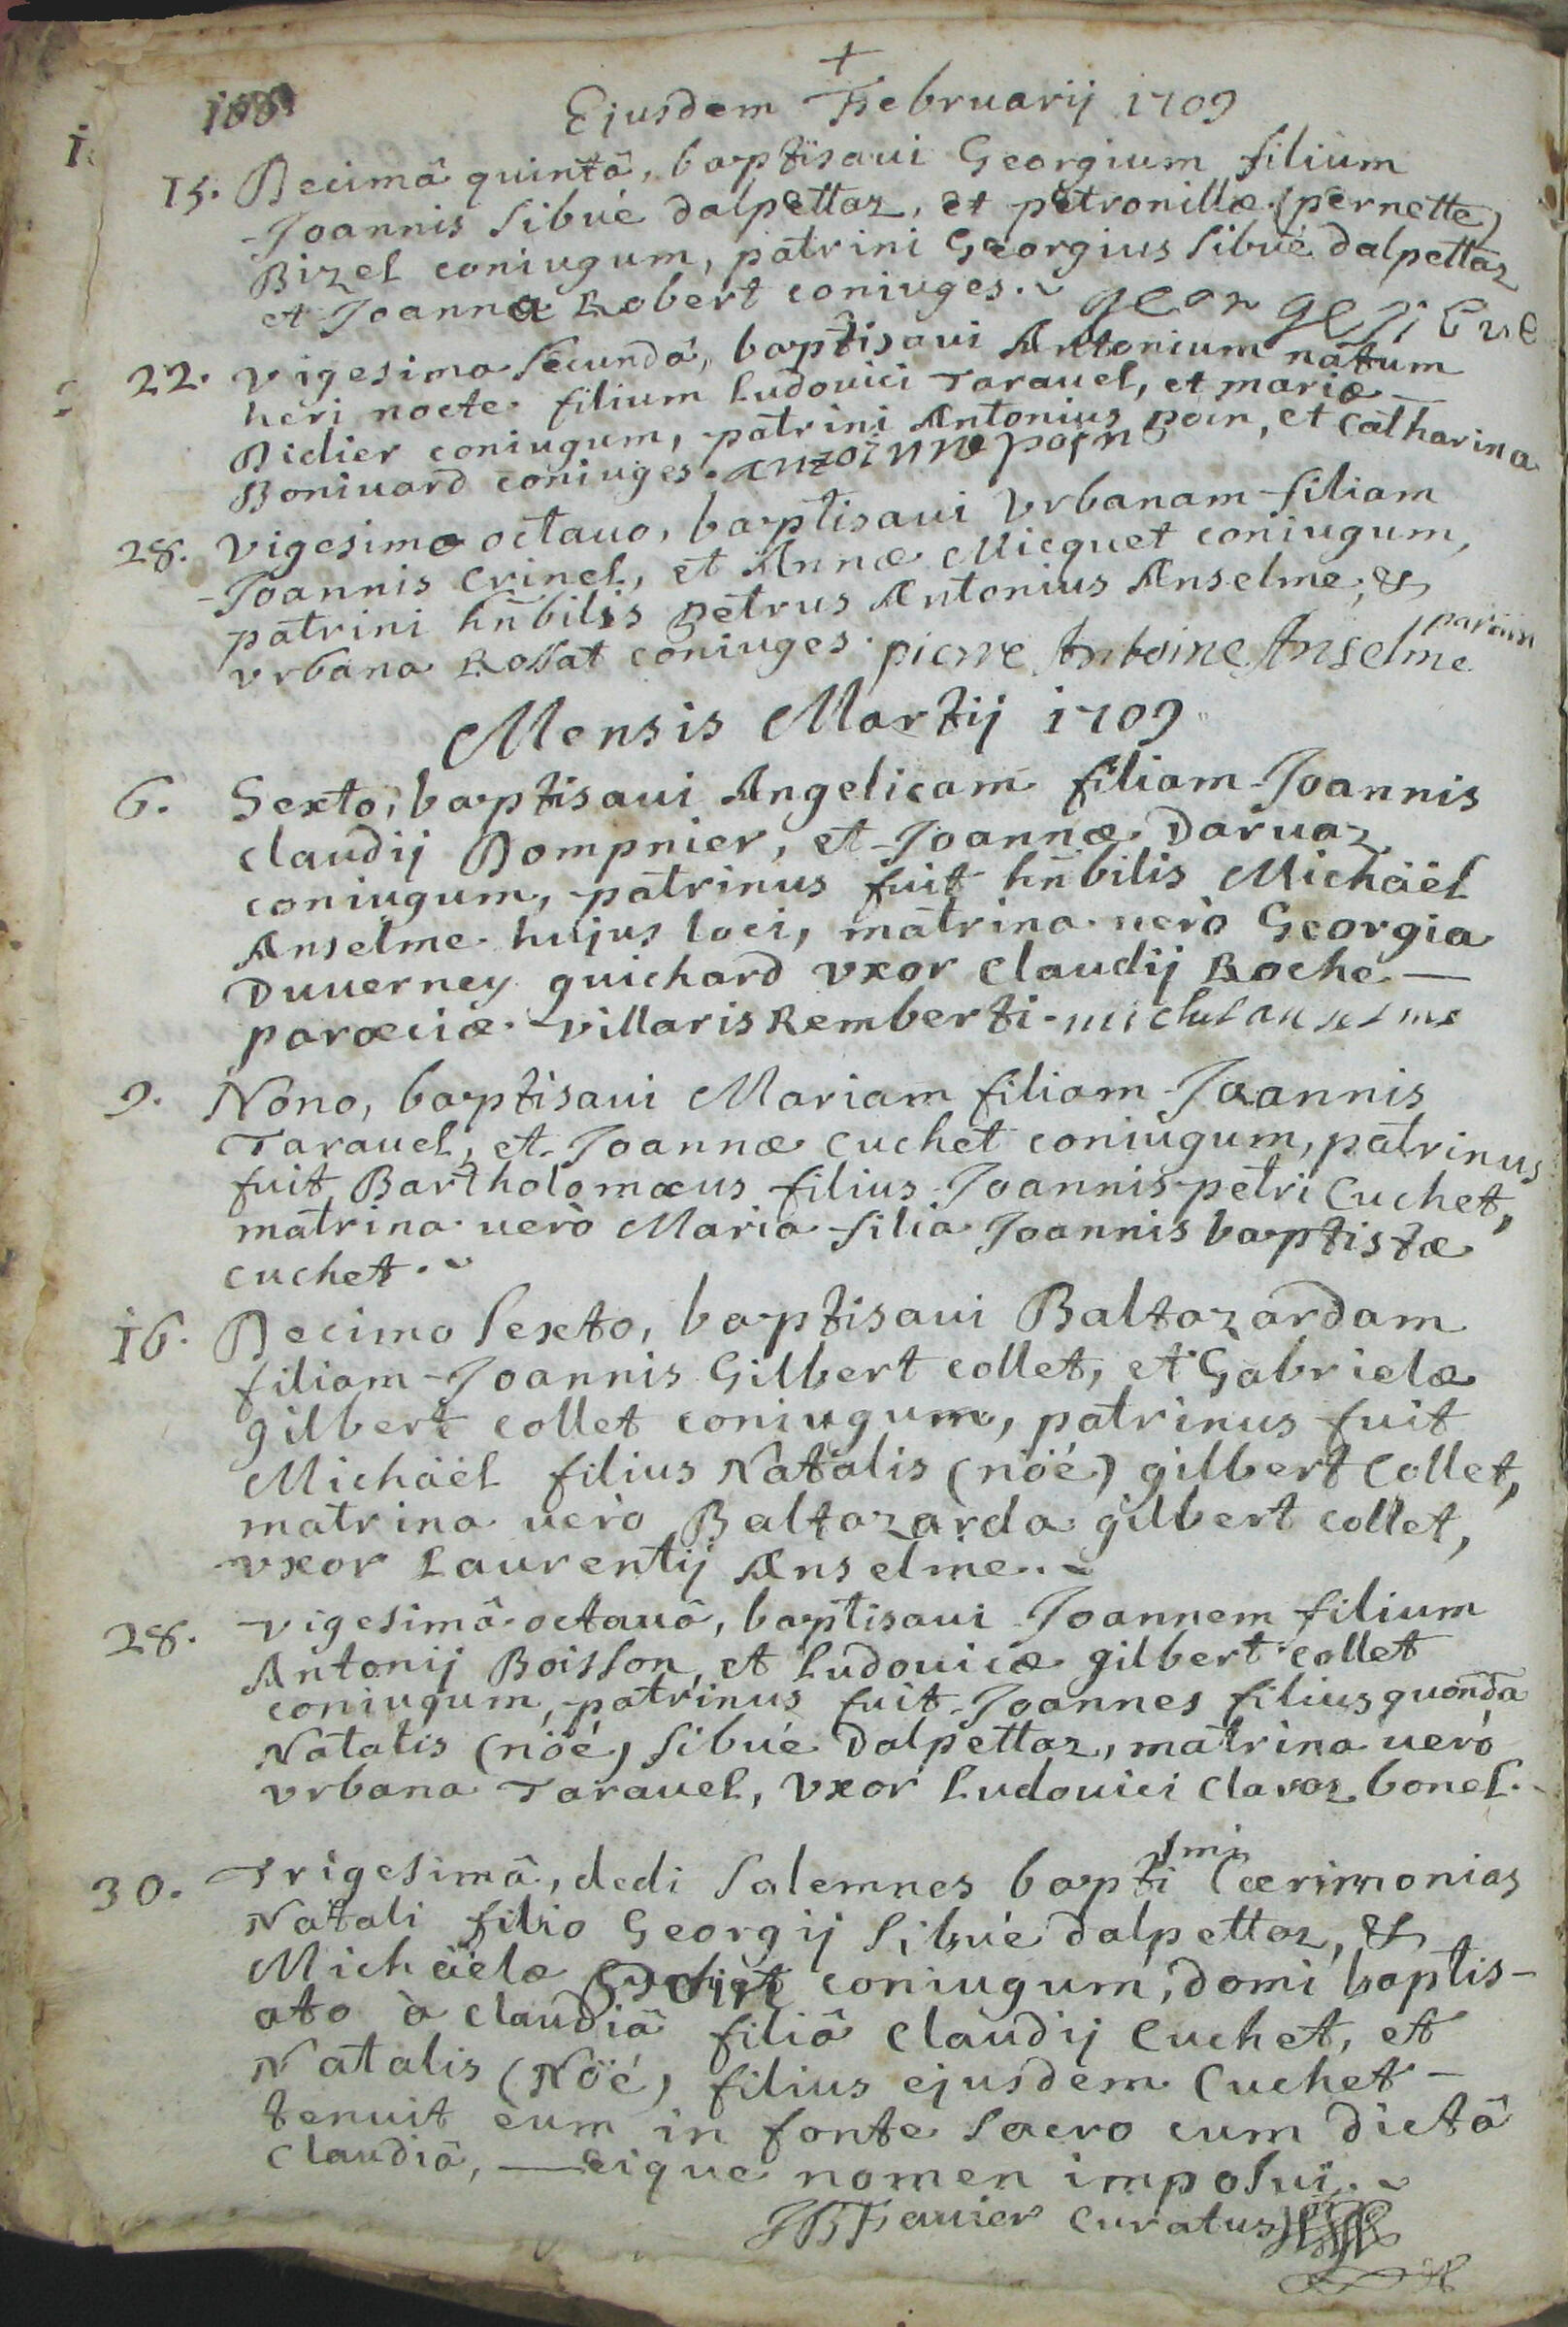 +
188
Ejusdem Februarij 1709
15. Decimâ quintâ, baptisaui Georgium filium
Joannis Sibué dalpettaz, et petronillæ (pernette)
Bizel coniugum, patrini Georgius Sibué dalpettaz
et Joanna Robert coniuges. george sibue
22. vigesima secundâ, baptisaui Antonium natum
heri nocte filium Ludouici Tarauel, et mariæ
Didier coniugum, patrini Antonius poin, et Catharina
Boniuard coniuges. antoinne poin
28. Vigesimo octauo, baptisaui Vrbanam filiam
Joannis Crinel, et Annæ Micquet coniugum,
patrini hnbilis petrus Antonius Anselme, &
vrbana Rossat coniuges. pierre Antoine Anselme parain
Mensis Martij 1709
6. Sexto, baptisaui Angelicam filiam Joannis
claudij Dompnier, et Joannæ Daruaz
coniugum, patrinus fuit hnbilis Michäel
Anselme hujus loci, matrina uerò Georgia
Duuerney guichard vxor claudij Roche —
parœciæ villaris Remberti. michel anselme
9. Nono, baptisaui Mariam filiam Joannis
Tarauel, et Joannæ Cuchet coniugum, patrinus
fuit Bartholomæus filius Joannis petri Cuchet,
matrina uerò Maria filia Joannis baptistæ
cuchet.
16. Decimo sexto, baptisaui Baltazardam
filiam Joannis Gilbert collet, et Gabrielæ
gilbert collet coniugum, patrinus fuit
Michäel filius Natalis (nöé) gilbert Collet,
matrina uerò Baltazarda gilbert collet,
vxor Laurentij Anselme.
28. vigesimâ octauâ, baptisaui Joannem filium
Antonij Boisson, et Ludouicæ gilbert collet
coniugum, patrinus fuit Joannes filius quondā
Natalis (nöé) Sibué dalpettaz, matrina uerò
vrbana Tarauel, vxor Ludouici Claraz bonel.
30. Trigesimâ, dedi Solemnes baptismi Cærimonias
Natali filio Georgij Sibué dalpettaz, &
Michäelæ Cuchet coniugum, domi baptis-
ato à claudiâ filiâ Claudij Cuchet, et
Natalis (Nöé) filius ejusdem Cuchet —
tenuit eum in fonte sacro cum dictâ
Claudiâ, — eique nomen imposui.
JB Fauier Curatus